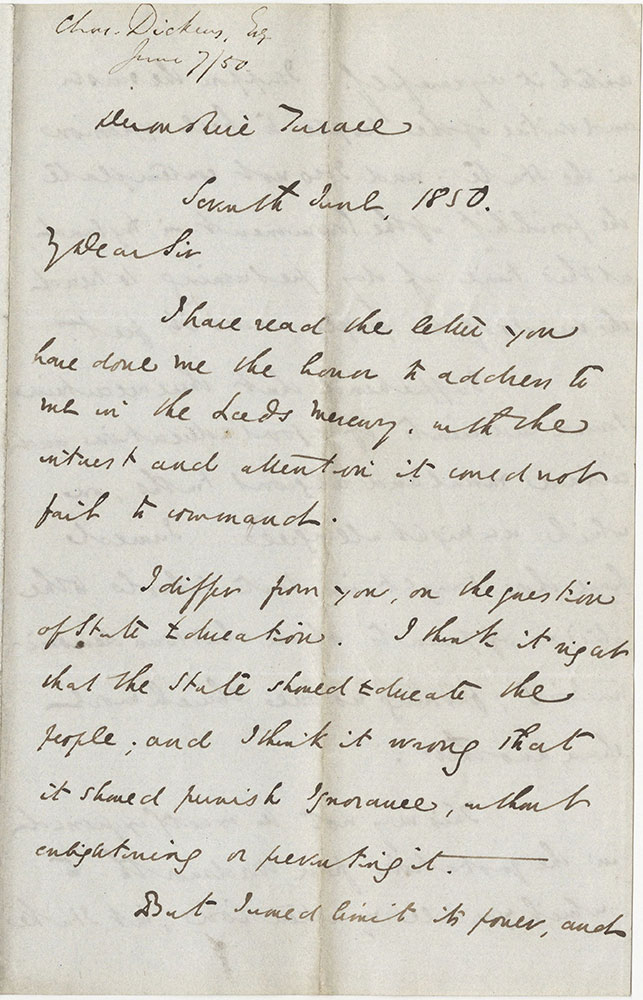 Chas. Dickens, Esq
June 7/50
Devonshire Terrace
Seventh June, 1850.
My Dear Sir
I have read the letter you
have done me the honor to address to
me in the Leeds Mercury, with the
interest and attention it could not
fail to command.
I differ from you, on the question
of State Education. I think it right
that the State should Educate the
people; and I think it wrong that
it should punish Ignorance, without
enlightening or preventing it.
But I would limit its power, and